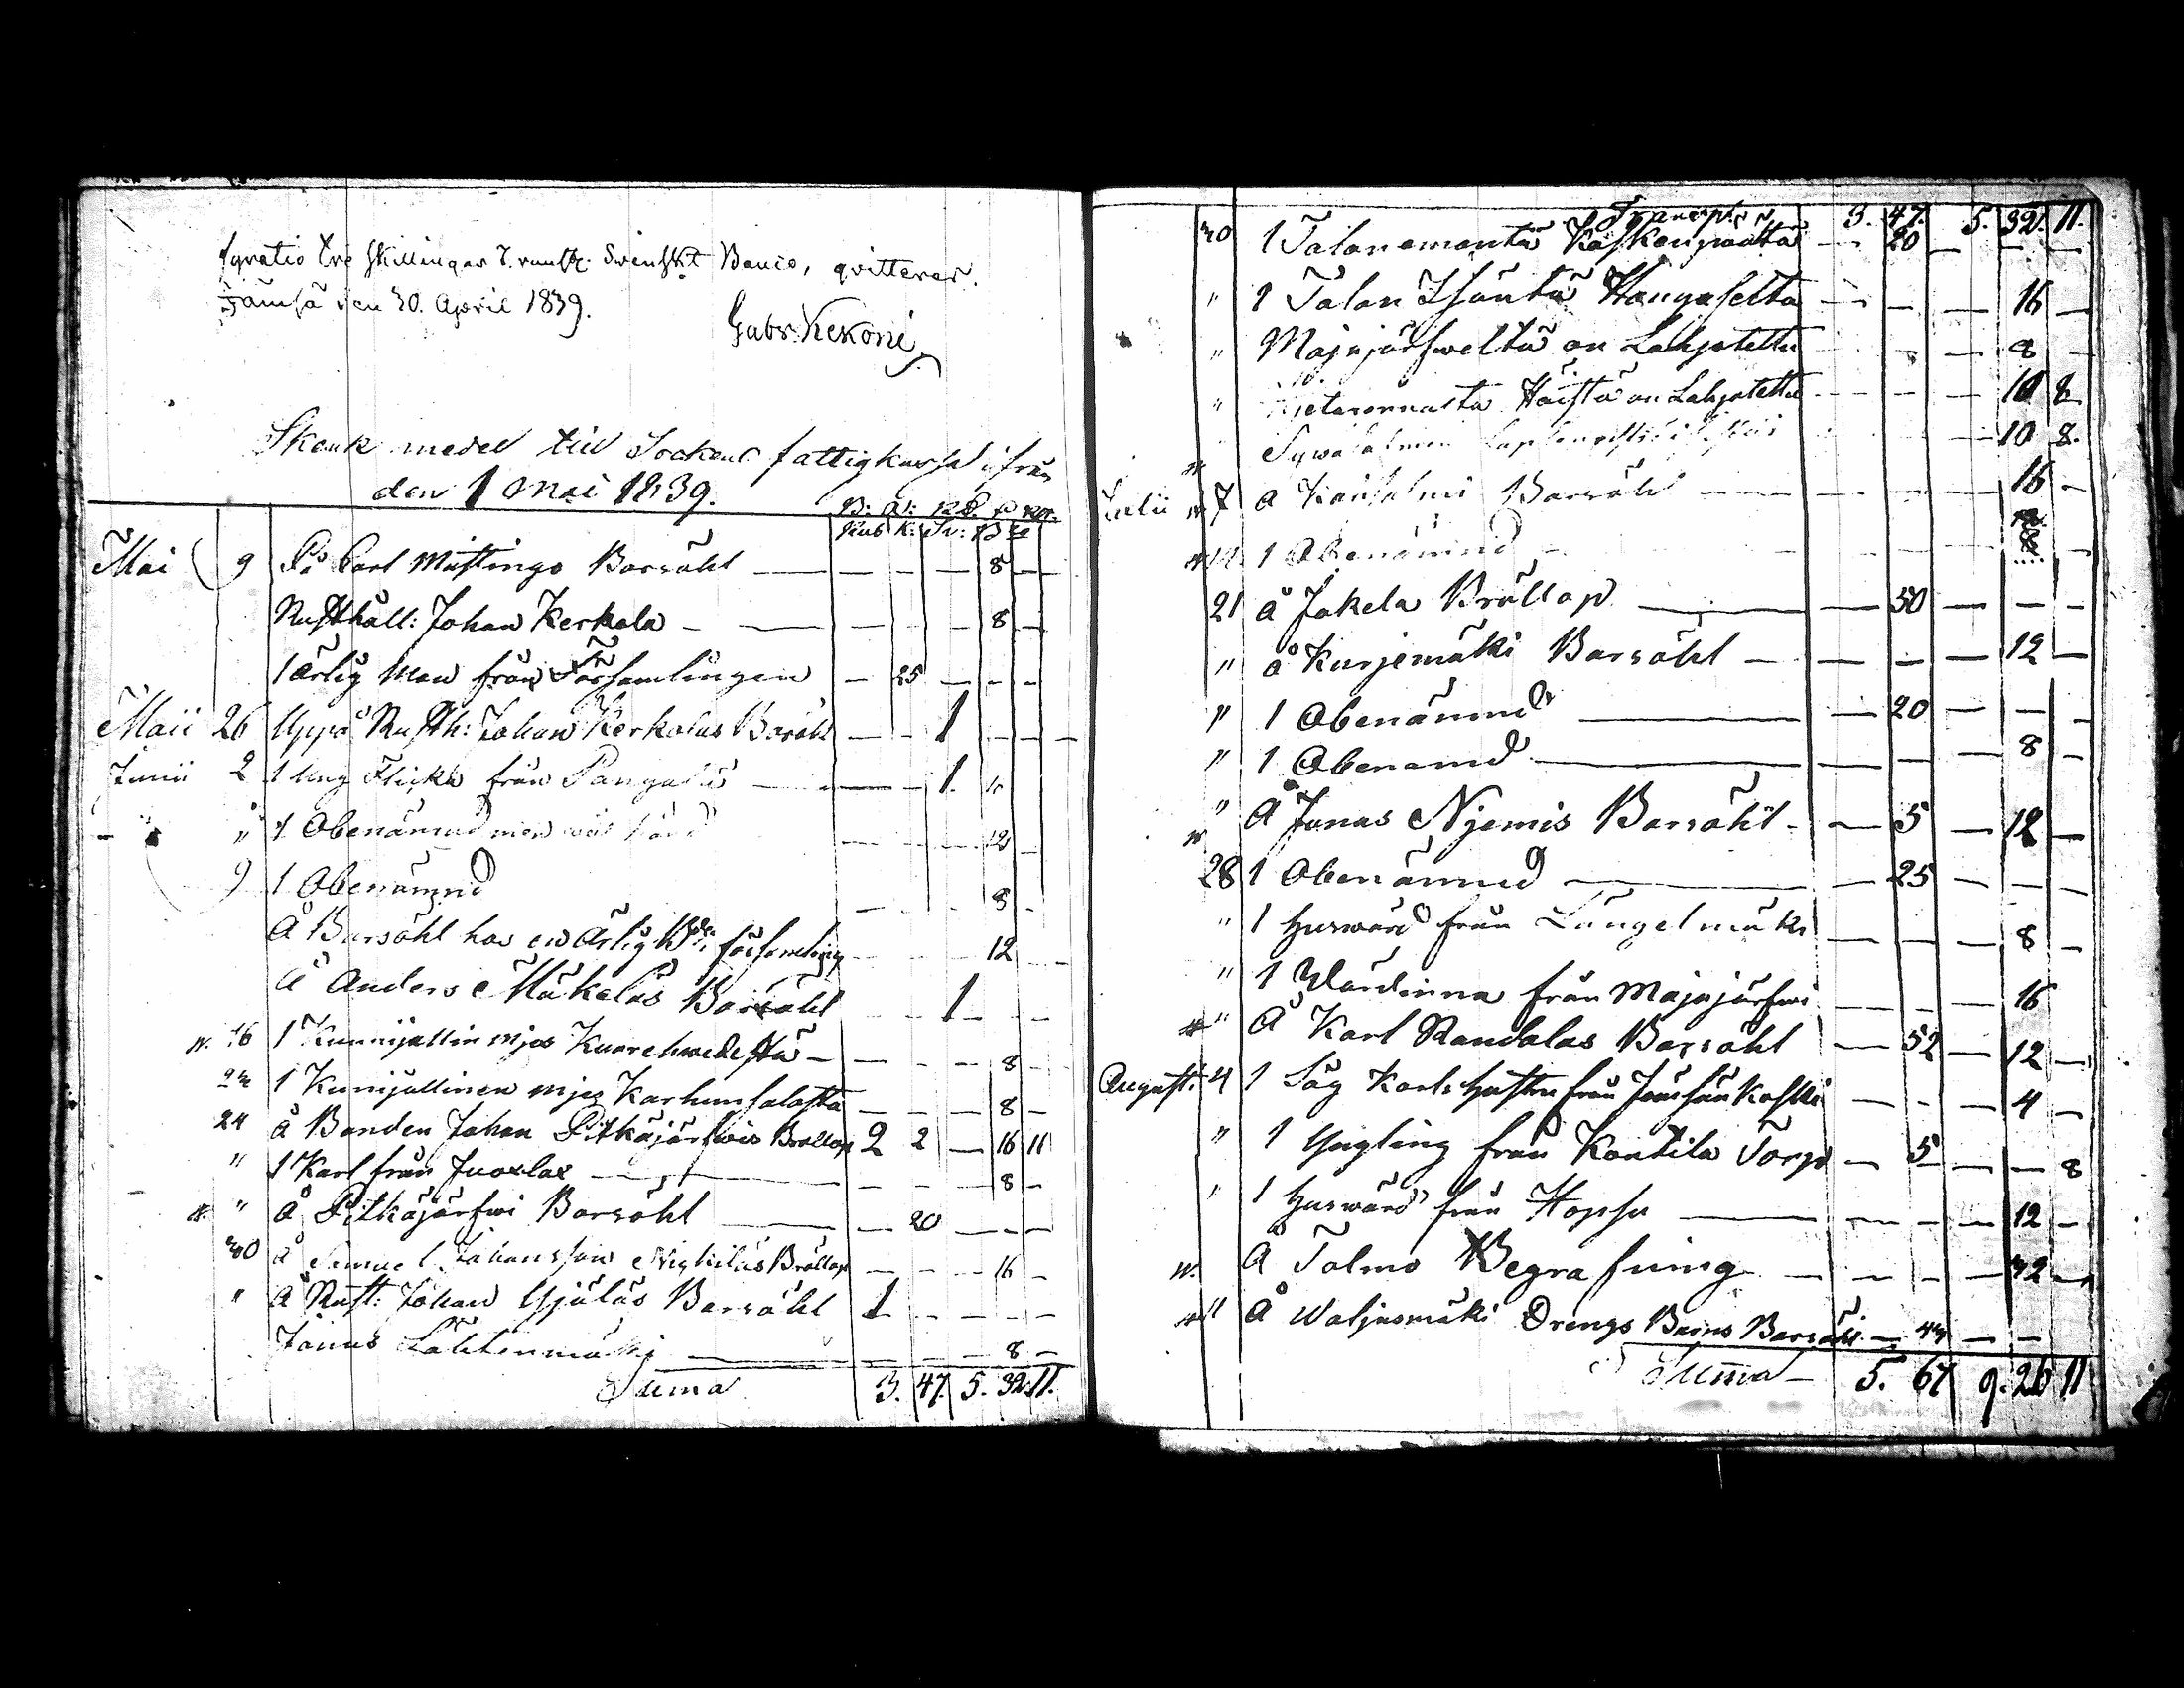 fyratio tre skillingar Svenskt Banco, qvitteras.
Jämsä den 30. April 1839.
Gabr: Kekoni
Skenk medel till Sockens fattigkassa ifrån
den 1 Mai 1839.
Rub K: Sv: B
Mai 9 På Carl Mustings Barsöhl — — — 8 —
Rusthåll: Johan Kerkola — — — — 8 —
1 ärlig Man från Församlingen — 25 — — —
Maii 26 Uppå Rusth: Johan Kerkolas Barsöhl — — 1 — —
Junii 2 1 Ung Flicka från Pangala — — 1.
" 1 Obenämnd men — — — 12 —
9 1 Obenämnd — — — 8 —
Å Barsöhl hos en ärlig i församling — — — 12 —
Å Anders Mäkeläs Barsöhl — — 1 — —
16 1 Kunnijallin mjes Kuorehwedestä — — — — 8 —
23 1 Kunnijallinen mjes Karhunsalosta — — — 8 —
24 å Bonden Johan Pitkäjärfwis Bröllop 2 2 — 16 11
" 1 Karl från Juoxlax — — — — 8 —
" å Pitkäjärfwi Barsöhl — — 20 — — —
30 å Samuel Johansson Nighiläs Bröllop — — — 16 —
" å Rust: Johan Yjäläs Barsöhl 1 — — — —
Jonas Lahtenmäki — — — — 8 —
Suma 3. 47. 5. 32. 11.
Transport 3. 47. 5. 32. 11.
30 1 Talonemäntä Kaskenpäältä — 20 — — —
" 1 Talon Isäntä Haugaselta — — — 16 —
" Majajärfweltä on Lahjotettu — — — 8 —
" Häistä on Lahjotettu — — — 10 8
— — — 10 8.
Julii 7 å Barsöhl — — — 16 —
14 1 Obenämnd — — — 8
21 å Jokela Bröllop — — 50 — — —
" å Kurjemäki Barsöhl — — — — 12 —
" 1 Obenämnd — — 20 — — —
" 1 Obenämd — — — — 8 —
" Å Junas Njemis Barsöhl — — 5 — 12 —
28 1 Obenämnd — — 25 — — —
" 1 Huswärd från Längelmäki — — — 8 —
" 1 Wärdinna från Majajärfwi — — — 16
" Å Karl Randalas Barsöhl — 52 — 12 —
August: 4 1 Säg Karls Hustru från Jämsän Koski — — — 4 —
" 1 Yngling från Kontila Torp — 5 — — 8
" 1 Huswärd från Hopsu — — — — 12 —
Å Talmo Begrafning — — — — 32 —
11 Å Waljusmäki Drengs Barns Barsöhl — 43 — —
Summa — 5. 67 9. 26 11